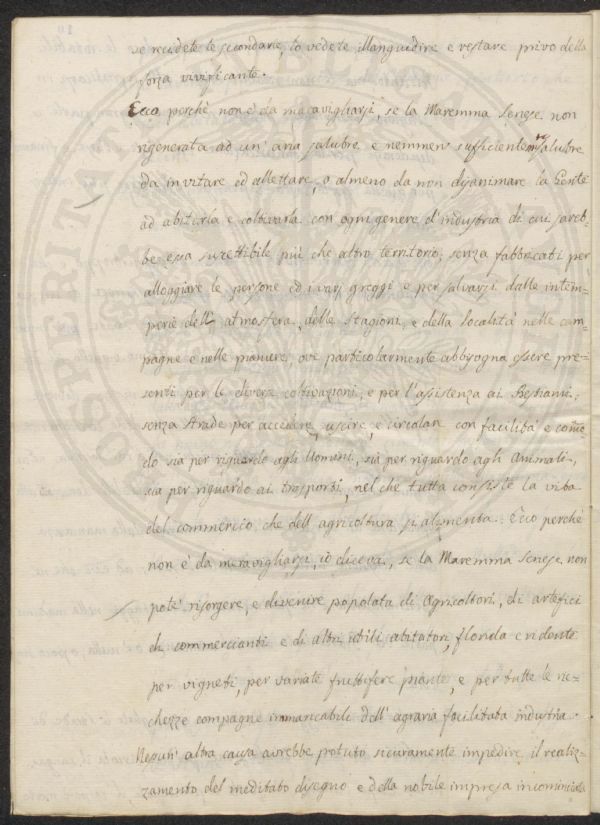 se recidete le secondarie, lo vedete illanguidire e restare privo della
forza vivificante.
Ecco perchè non è da maravigliarsi, se la Maremma Senese non
rigenerata ad un' aria salubre e nemmen sufficiente
da invitare ed allettare, o almeno da non disanimare la Gente
ad abitarla e coltivarla con ogni genere d'industria di cui sareb=
be essa suscettibile più che altro territorio; senza fabbricati per
alloggiare le persone ed i varj greggi e per salvarsi dalle intem=
perie dell' atmosfera, delle stagioni, e della località nelle cam=
pagne e nelle pianure, ove particolarmente abbisogna essere pre=
senti per le diverse coltivazioni, e per l'assistenza ai Bestiami;
senza strade per accedere, uscire, e circolare con facilità e como=
do sia per riguardo agli Uomini, sia per riguardo agli animali,
sia per riguardo ai trasporti, nel che tutta consiste la vita
del commercio che dell' agricoltura si alimenta. Ecco perchè
non è da meravigliarsi, io diceva, se la Maremma Senese non
potè risorgere, e divenire popolata di Agricoltori, di artefici
di commercianti e di altri utili abitatori, florida e ridente
per vigneti, per variate fruttifere piante, e per tutte le ric=
chezze compagne immancabili dell' agraria facilitata industria.
Nessun' altra causa avrebbe potuto sicuramente impedire il realiz=
zamento del meditato disegno e della nobile impresa incominciata